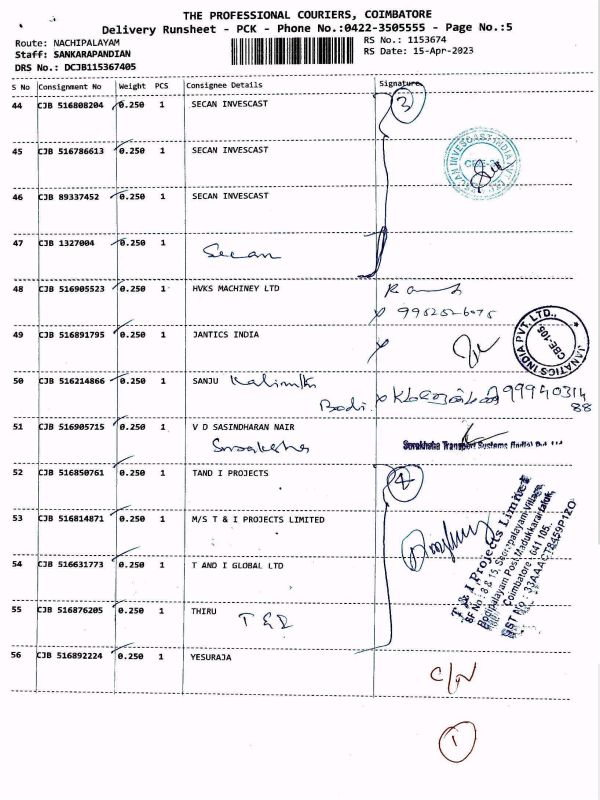 THE PROFESSIONAL COURIERS, COIMBATORE
Delivery Runsheet - PCK - Phone No.:0422-3505555 - Page No.:5
Route: NACHIPALAYAM
RS No.: 1153674
Staff: SANKARAPANDIAN
RS Date: 15-Apr-2023
DRS No.: DCJB115367405
S No Consignment No Weight PCS Consignee Details Signature
44 CJB 516808204 0.250 1 SECAN INVESCAST 3
45 CJB 516786613 0.250 1 SECAN INVESCAST
46 CJB 89337452 0.250 1 SECAN INVESCAST
47 CJB 1327004 0.250 1
Secan
48 CJB 516905523 0.250 1 HVKS MACHINEY LTD
49 CJB 516891795 0.250 1 JANTICS INDIA
JANATICS INDIA PVT. LTD.,
CBE-105.
50 CJB 516214866 0.250 1 SANJU
9994031488
51 CJB 516905715 0.250 1 V D SASINDHARAN NAIR
52 CJB 516850761 0.250 1 TAND I PROJECTS 4
53 CJB 516814871 0.250 1 M/S T & I PROJECTS LIMITED
54 CJB 516631773 0.250 1 T AND I GLOBAL LTD
T & I Projects Limited
Coimbatore - 641 105.
55 CJB 516876205 0.250 1 THIRU
T & I
56 CJB 516892224 0.250 1 YESURAJA
1